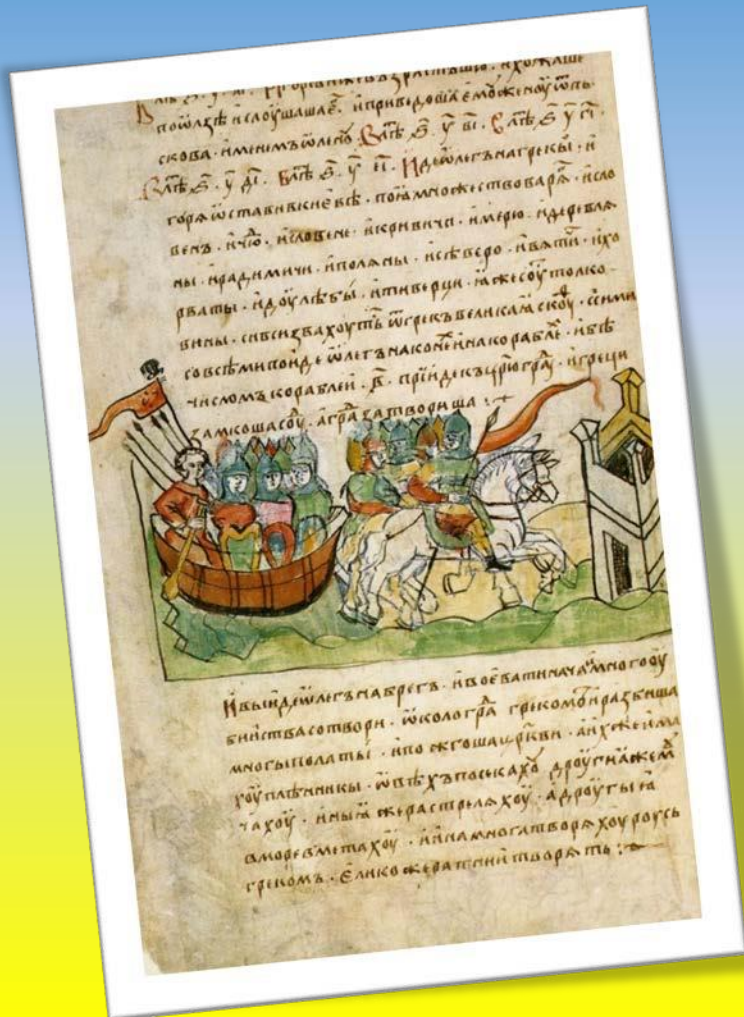 възрастъшю · и хожаше
по ѡлзѣ и слоушаша е҃ · и приведоша емоу женоу ѿ пь
скова · именемъ ѡленоу · В лѣⷮ ҂ѕ҃ · у҃ в҃і · В лѣⷮ ҂ѕ҃ у҃ г҃і ·
В лѣⷮ ҂ѕ҃ · у҃ д҃і · В лѣⷮ ҂ѕ҃ · у҃ е҃і · Иде ѡлегъ на грекы · и
горѧ ѡставив в киевѣ · поѧ множество варѧ · и сло
венъ · и чю · и словене · и кривичи · и мерю · и деревлѧ
ны · и радимичи · и полѧны · и сѣверо · и вѧтичи · и хо
рваты · и доулѣбы · и тиверци · ꙗже соуⷮ толко
вины · си вси звахоуть ѿ грекъ великаѧ скоуⷴ · с сими
со всѣми поиде ѡлегъ на конеⷯ и на кораблеⷯ · и бѣ
числомъ кораблеи · в҃ · прїиде къ црⷭ҇юграⷣ · и греци
замкоша соуⷣ · а граⷣ затвориша :·
И выиде ѡлегъ на брегъ · и воевати нача · и много оу
биства сотвори · ѡколо граⷣ грекомъ · и разбиша
многы полаты · и пожгоша црⷪ҇кви · а иⷯже има
хоу плѣнникы · ѡвѣхъ посѣкахоу дроугиꙗ же моу
чахоу · иныꙗ же растрелѧхоу · а дроугыꙗ
в море вметахоу · и ина многа творѧхоу роусь
грекомъ · елико же ратнии творѧть :·